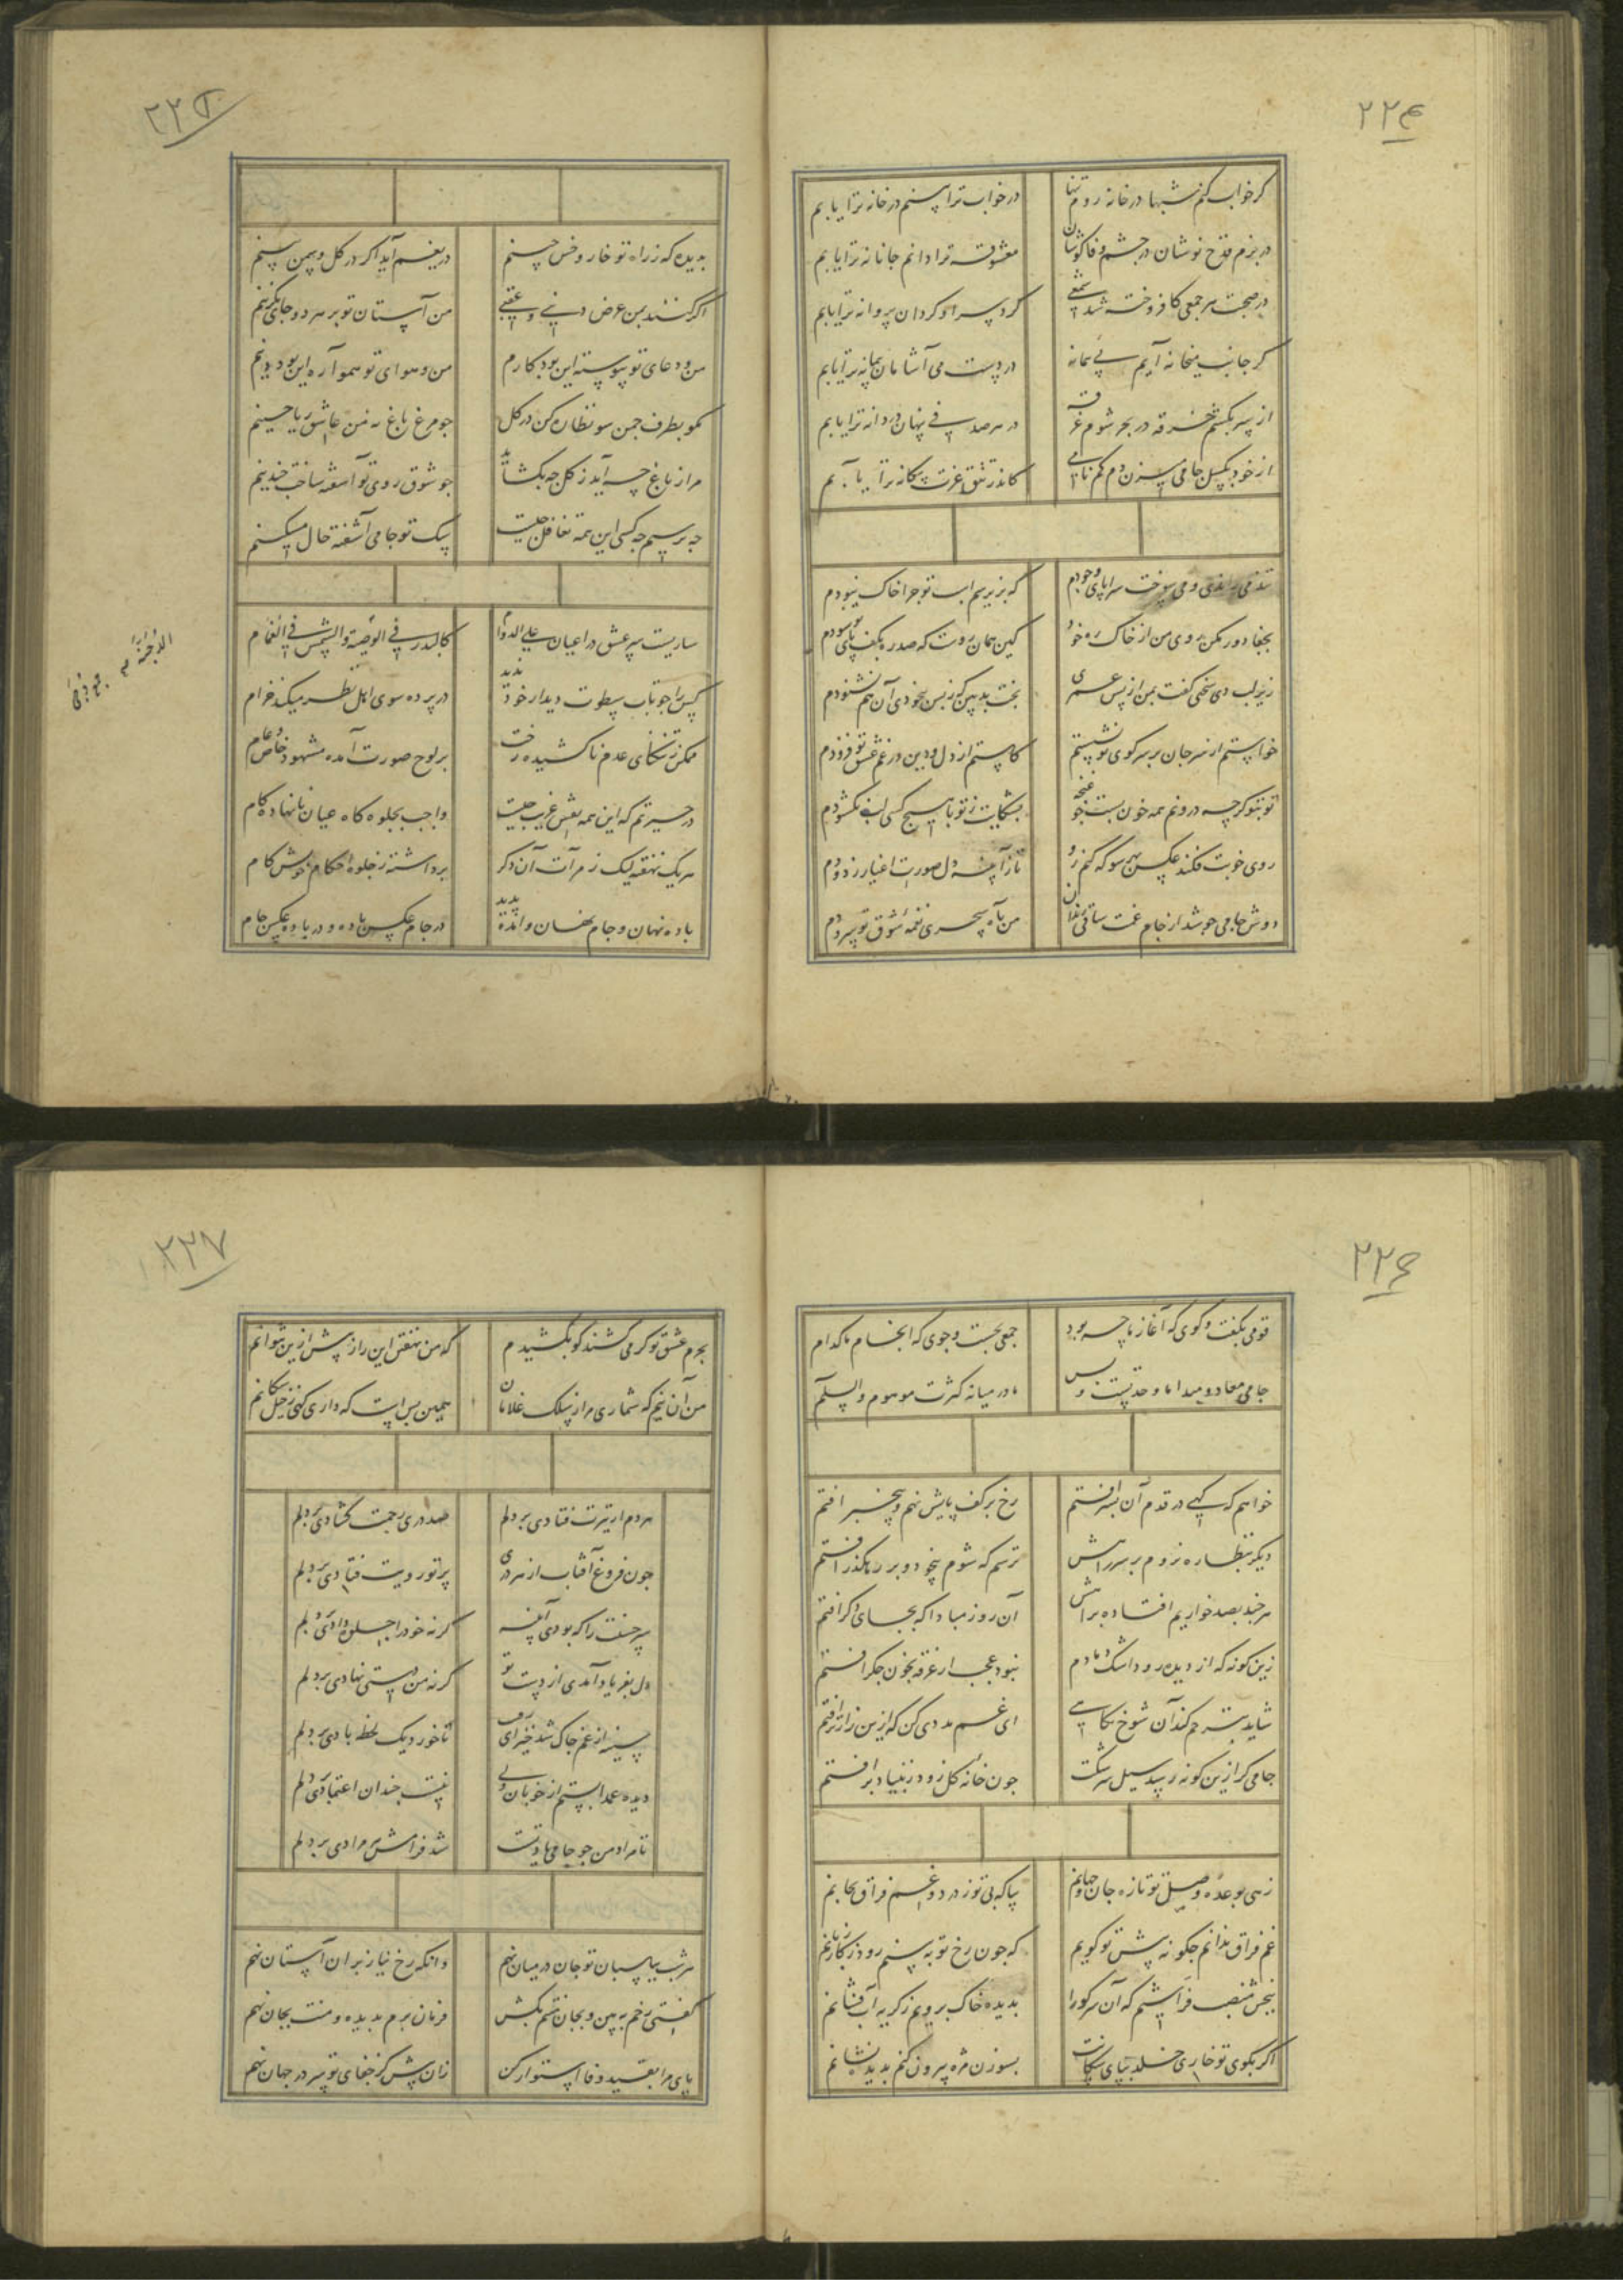 ۲۲۴
کر خواب کنم شبها در خانه روم تنها
در خواب ترا بینم در خانه ترا یابم
در بزم قدح نوشان در چشم وفا کوشان
معشوقه ترا دانم جانانه ترا یابم
در صحبت هر جمعی کافروخته شد شمعی
کرد سر او کردان پروانه ترا یابم
کر جانب میخانه آیم پی پیمانه
در دست می آشامان پیمانه ترا یابم
از سر بکشم خرقه در بحر شوم غرقه
در هر صدفی پنهان دردانه ترا یابم
از خود بکسل جامی میزن دم کم نامی
کاندر تتق عزت بیکانه ترا یابم
می سوخت سراپای وجودم
بجفا دور مکن روی من از خاک ره خود
کین همان روست که صد ره بکف پای تو سودم
زیر لب دی سخنی کفت بمن از پس عمری
بخت بد بین که ز بس بیخودی آن هم نشنودم
خواستم از سر جان بر سر کوی تو نشستم
کاستم از دل و دین در غم عشق تو فزودم
تو بتو کرچه درونم همه خون بست چو غنچه
بشکایت ز تو با هیچ کسی لب نکشودم
روی خوبت فکند عکس بهر سو که کنم رو
تا ز آیینه دل صورت اغیار زدودم
دوش جامی چو شد از جام غمت ساقی رندان
من بآه سحری نغمه شوق تو سرودم
۲۲۵
بدیده که ز راه تو خار و خس چینم
دریغم آید اکر در کل و سمن بینم
اکر کنند بمن عرض دنیی و عقبی
من آستان تو بر هر دو جای بکزینم
من و دعای تو پیوسته این بود کارم
من و هوای تو هموآره این بود دینم
مکو بطرف چمن سو نظاره کن در کل
چو مرغ باغ نه من عاشق ریاحینم
مرا ز باغ چه آید ز کل چه بکشاید
چو شوق روی تو آشفته ساخت چندینم
چه پرسیم چه کسی این همه تغافل چیست
سک تو جامی آشفته حال مسکینم
ساریست سر عشق در اعیان علی الدوام
کالبدر فی الدجیة والشمس فی الغمام
کس را چو تاب سطوت دیدار خود ندید
در پرده سوی اهل نظر میکند خرام
ممکن ز تنکنای عدم ناکشیده رخت
بر لوح صورت آمده مشهود خاص و عام
در حیرتم که این همه نقش غریب چیست
واجب بجلوه کاه عیان نانهاده کام
هر یک نهفته لیک ز مرآت آن دکر
برداشته ز جلوه احکام خویش کام
باده نهان و جام نهان و آمده پدید
در جام عکس باده و در باده عکس جام
۲۲۶
قومی بکفت و کوی که آغاز ما چه بود
جمعی بجست و جوی که انجام ما کدام
جامی معاد و مبدا ما وحدتست و بس
ما در میانه کثرت موهوم والسلام
خواهم که کهی در قدم آن پسر افتم
رخ بر کف پایش نهم و بیخبر افتم
دیکر بنظاره نروم بر سر راهش
ترسم که شوم بیخود و بر رهکذر افتم
هر چند بصد خواریم افتاده براهش
آن روز مبادا که بجای دکر افتم
زین کونه که از دیده رود اشک دمادم
نبود عجب ار غرقه بخون جکر افتم
شاید بترحم کند آن شوخ نکاهی
ای غم مددی کن که ازین زارتر افتم
جامی کر ازین کونه رسد سیل سرشکت
چون خانه کل زود ز بنیاد برافتم
زهی بوعده وصل تو تازه جان و جهانم
بیا که بی تو ز درد و غم فراق بجانم
غم فراق ندانم چکونه پیش تو کویم
که چون رخ تو ببینم رود ز کار زبانم
ببخش منصب فراشیم که آن سر کو را
بدیده خاک بروبم ز کریه آب فشانم
اکر بکوی تو خاری خلد بپای سکانت
بسوزن مژه بیرون کنم بدیده نشانم
۲۲۷
بجرم عشق تو کر می کشند کو بکشیدم
که من نهفتن این راز پیش ازین نتوانم
من آن نیم که شماری مرا ز سلک غلامان
همین بس است که داری کهی ز خیل سکانم
هر دم از تیرت فتادی بر دلم
صد دری رحمت کشادی بر دلم
چون فروغ آفتاب از هر دری
پرتو رویت فتادی بر دلم
سر حسنت را که بودی آینه
کر نه خود را جلوه دادی بر دلم
دل بفریاد آمدی از دست تو
کر نه من دستی نهادی بر دلم
سینه از غم چاک شد خیز ای رفیق
تا خورد یک لحظه بادی بر دلم
دیده عمدا بستم از خوبان ولی
نیست چندان اعتمادی بر دلم
نامراد من چو جامی یاد تست
شد فرامش هر مرادی بر دلم
هر شب بیا سبان تو جان در میان نهم
وانکه رخ نیاز بران آستان نهم
کفتی رخم ببین و بجان منتم بکش
فرمان برم بدیده و منت بجان نهم
پای مرا بقید وفا استوار کن
زان پیش کز جفای تو سر در جهان نهم